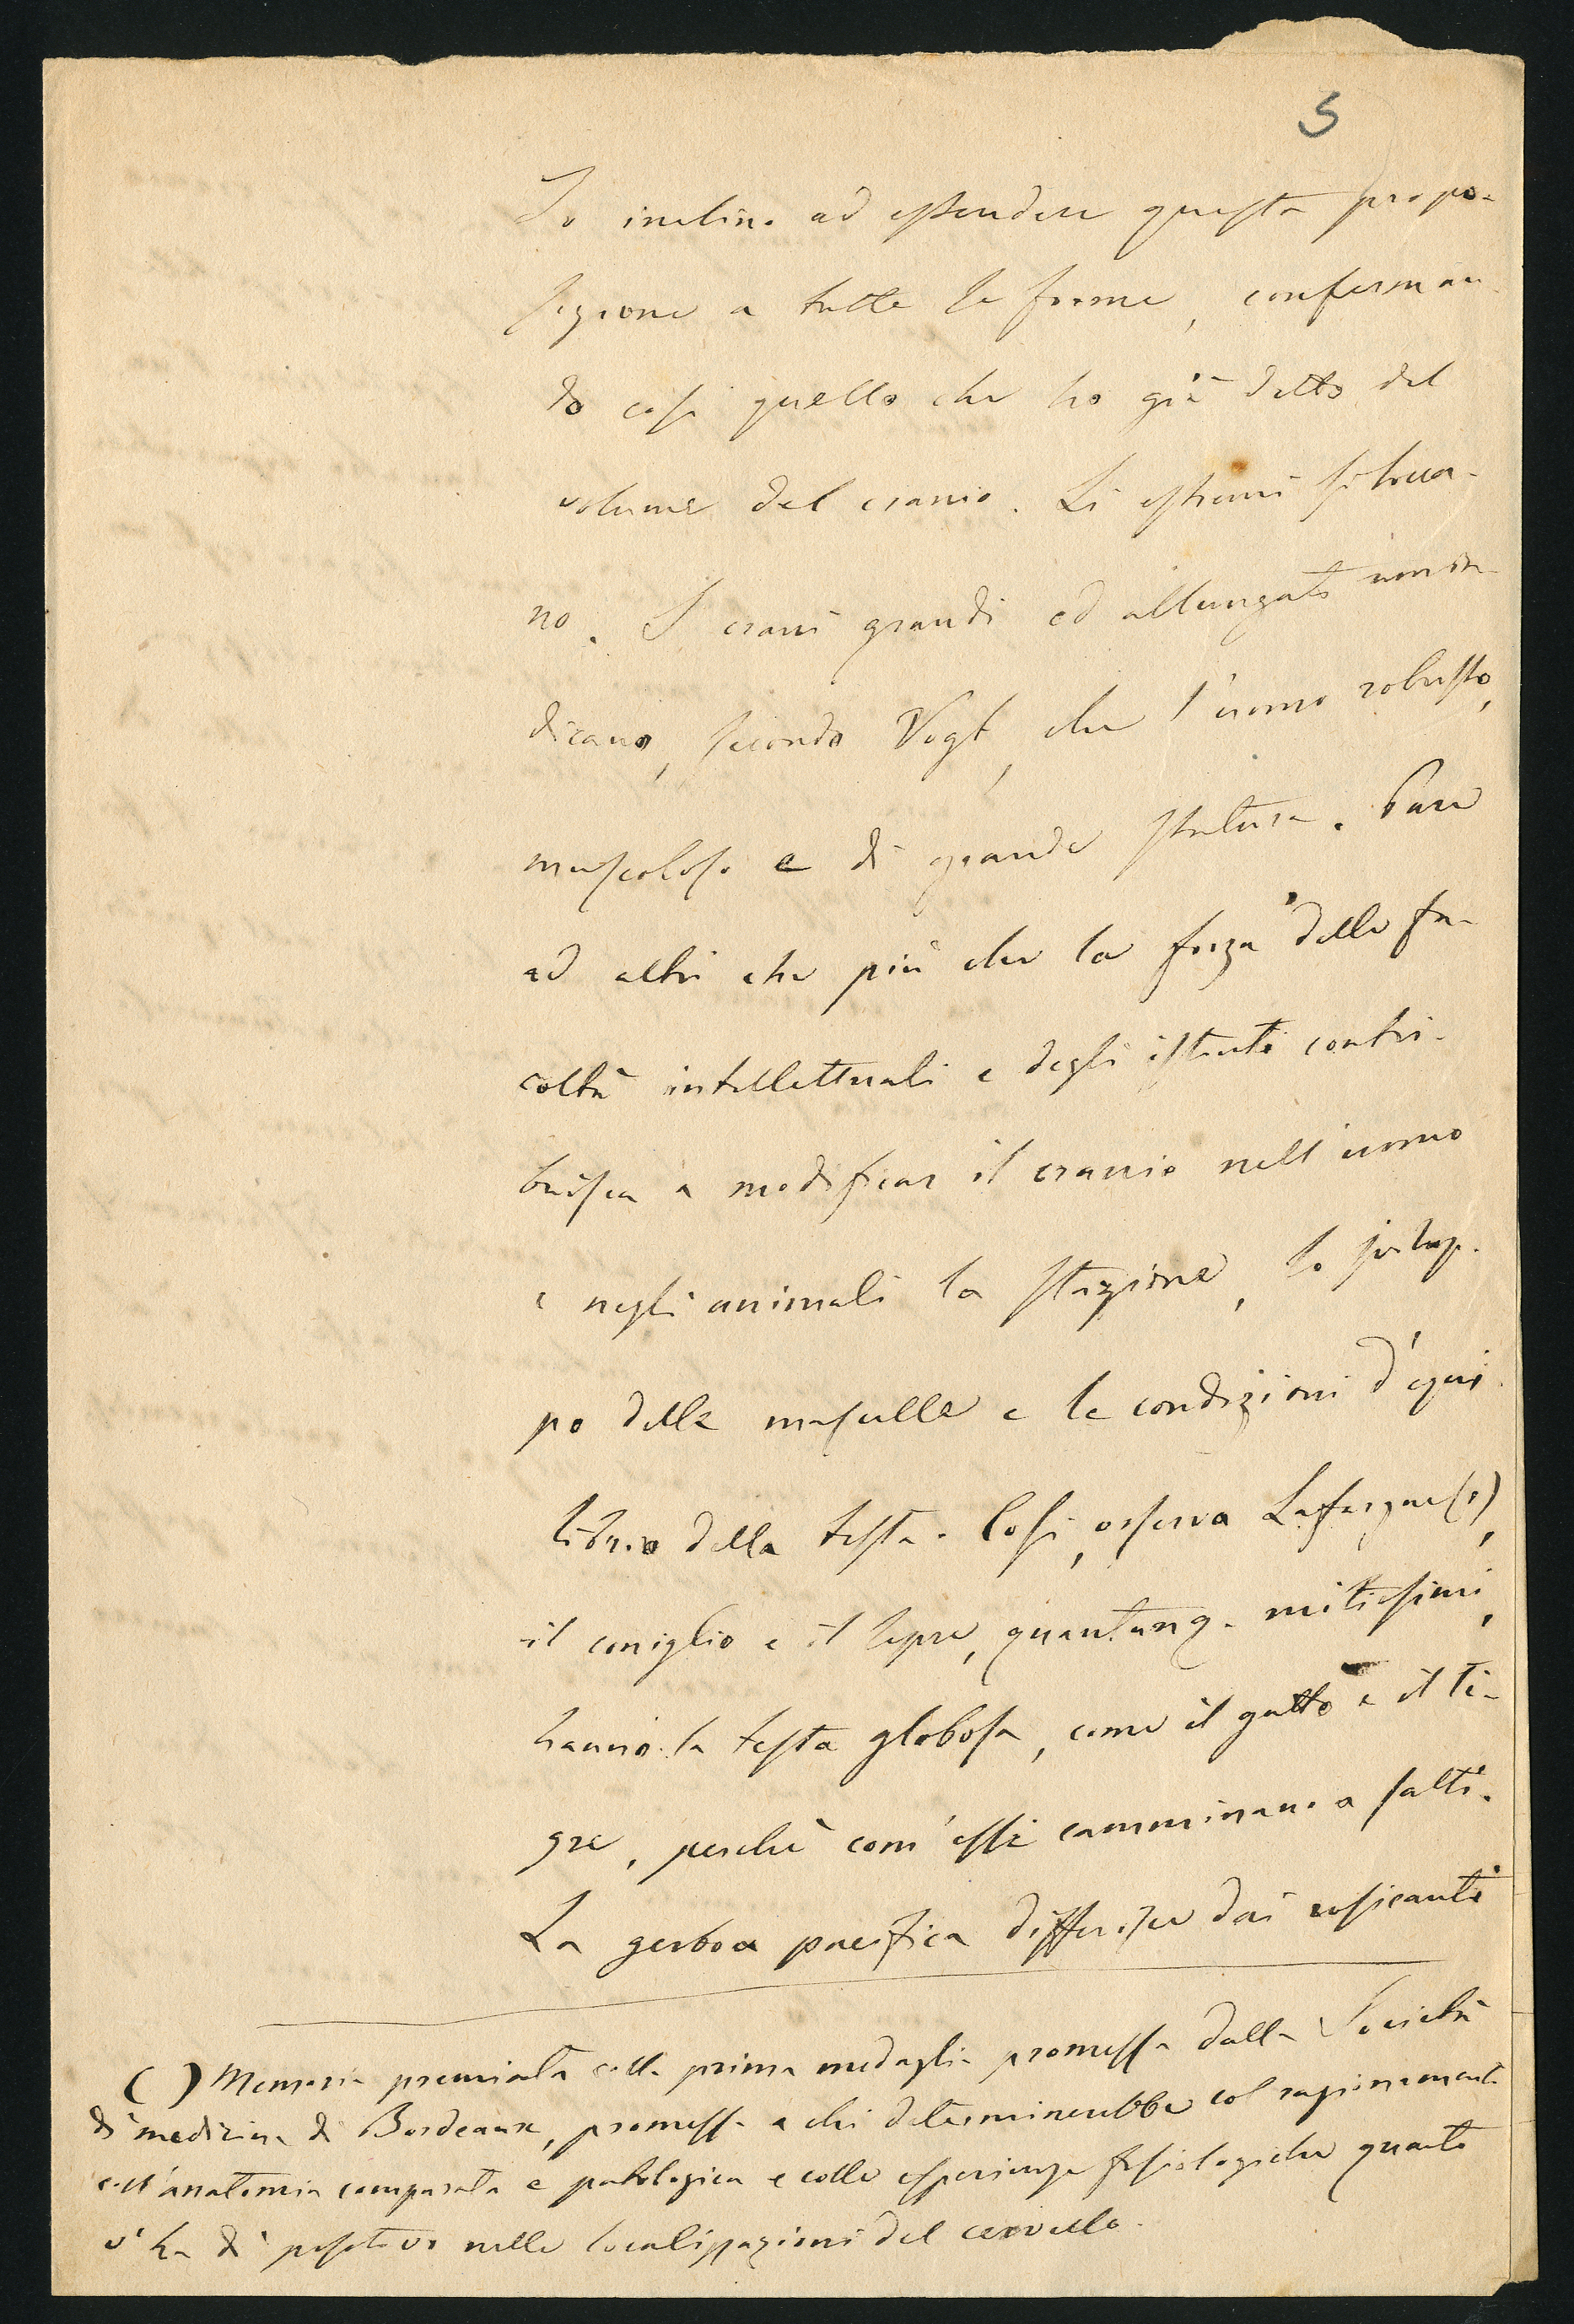 5
Io inclino ad estendere questa propo-
sizione a tutte le forme, conferman-
do così quello che ho già detto del
volume del cranio. Li estremi si trova-
no. I crani grandi ed allungati non in-
dicano, secondo Vogt, che l'uomo robusto,
muscoloso e di grande statura. Pare
ad altri che più che la forza delle fa-
coltà intellettuali e degli istinti contri-
buisca a modificar il cranio nell'uomo
e negli animali la stazione, lo svilup-
po delle mascelle e le condizioni d'equi-
librio della testa. Così, osserva Lafargue (1),
il coniglio e il lepre, quantunq. mitissimi,
hanno la testa globosa, come il gatto e il ti-
gre, perchè com'essi camminano a salti.
La gerboa pacifica differisce dai rosicanti
( ) Memoria premiata colla prima medaglia promessa dalla Società
di medicina di Bordeaux, promessa a chi determinerebbe col ragionamento
coll'anatomia comparata e patologica e colle esperienze fisiologiche quanto
v'ha di positivo nelle localizzazioni del cervello.